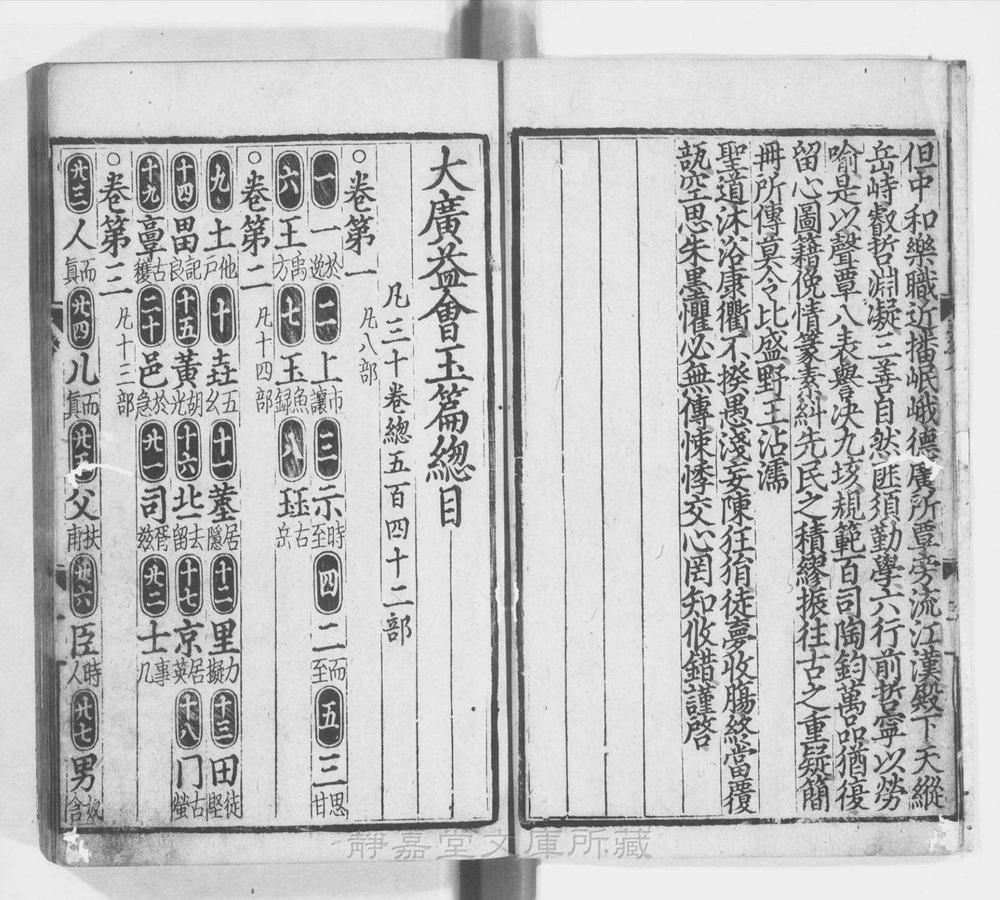 但中和樂職近播岷峨德廣所覃旁流江漢殿下天縱
岳峙叡哲淵凝三善自然匪須勤學六行前哲寧以勞
喻是以聲覃八表譽决九垓規範百司陶鈞萬品猶復
留心圖籍俛情篆素糾先民之積繆振往古之重疑簡
冊所傳莫令比盛野王沾濡
聖道沐浴康衢不揆愚淺妄陳狂狷徒夢收腸終當覆
瓿空思朱墨懼必無傳悚悸交心罔知攸錯謹啓
大廣益會玉篇總目
凡三十卷總五百四十二部
○卷第一 凡八部
一 一 於逸 二 上 市讓 三 示 時至 四 二 而至 五 三 思甘
六 王 禹方 七 玉 魚録 八 珏 古岳
○卷第二 凡十四部
九 土 他戶 十 垚 五幺 十一 堇 居隱 十二 里 力擬 十三 田 徒堅
十四 畕 記良 十五 黃 胡光 十六 北 去留 十七 京 居英 十八 冂 古螢
十九 𩫏 古獲 二十 邑 於急 廿一 司 胥兹 廿二 士 事几
○卷第三 凡十三部
廿三 人 而真 廿四 儿 而真 廿五 父 扶甫 廿六 臣 時人 廿七 男 奴含
靜嘉堂文庫所藏